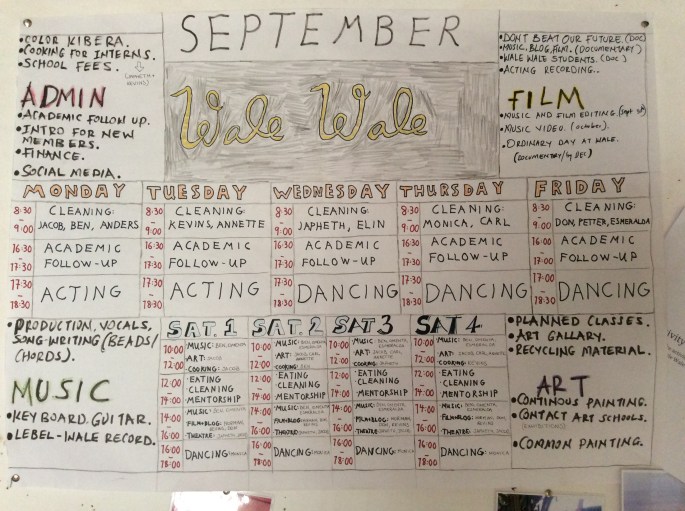 SEPTEMBER
Wale Wale
•COLOR KIBERA.
•COOKING FOR INTERNS.
•SCHOOL FEES.
ADMIN
•ACADEMIC FOLLOW UP.
•INTRO FOR NEW
MEMBERS.
•FINANCE.
•SOCIAL MEDIA.
•DONT BEAT OUR FUTURE.(DOC)
•MUSIC, BLOG, FILM. (DOCUMENTARY)
•WALE WALE STUDENTS. (DOC)
•ACTING RECORDING.
FILM
•MUSIC AND FILM EDITING
•MUSIC VIDEO. (October).
•ORDINARY DAY AT WALE.
MONDAY
8:30
-
9:00
CLEANING:
JACOB, BEN, ANDERS
16:30
-
17:30
ACADEMIC
FOLLOW-UP
17:30
-
18:30
ACTING
TUESDAY
8:30
-
9:00
CLEANING:
KEVINS, ANNETTE
16:30
-
17:30
ACADEMIC
FOLLOW-UP
17:30
-
18:30
ACTING
WEDNESDAY
8:30
-
9:00
CLEANING:
JAPHETH, ELIN
16:30
-
17:30
ACADEMIC
FOLLOW-UP
17:30
-
18:30
DANCING
THURSDAY
8:30
-
9:00
CLEANING:
MONICA, CARL
16:30
-
17:30
ACADEMIC
FOLLOW-UP
17:30
-
18:30
DANCING
FRIDAY
8:30
-
9:00
CLEANING:
DON, PETTER, ESMERALDA
16:00
-
17:00
ACADEMIC
FOLLOW-UP
17:00
-
18:30
DANCING
•PRODUCTION, VOCALS,
SONG-WRITING (BEADS/
CHORDS).
MUSIC
•KEYBOARD. GUITAR.
•LEBEL-WALE RECORD.
SAT. 1
10:00
-
12:00
MUSIC:
ART:
COOKING:
12:00
-
14:00
•EATING
•CLEANING
•MENTORSHIP
14:00
-
16:00
MUSIC:
FILM+BLOG:
THEATRE:
16:00
-
18:00
DANCING:
SAT. 2
10:00
-
12:00
MUSIC:
ART:
COOKING:
12:00
-
14:00
EATING
CLEANING
MENTORSHIP
14:00
-
16:00
MUSIC:
FILM+BLOG
THEATRE:
16:00
-
18:00
DANCING:
SAT 3
10:00
-
12:00
MUSIC:
ART:
COOKING:
12:00
-
14:00
•EATING
•CLEANING
•MENTORSHIP
14:00
-
16:00
MUSIC:
FILM+BLOG:
THEATRE:
16:00
-
18:00
DANCING:
SAT 4
10:00
-
12:00
MUSIC:
ART:
COOKING:
12:00
-
14:00
•EATING
•CLEANING
•MENTORSHIP
14:00
-
16:00
MUSIC:
FILM+BLOG:
THEATRE:
16:00
-
18:00
DANCING:
•PLANNED CLASSES.
•ART GALLARY.
•RECYCLING MATERIAL.
ART
•CONTINOUS PAINTING.
•CONTACT ART SCHOOLS.
•COMMON PAINTING.